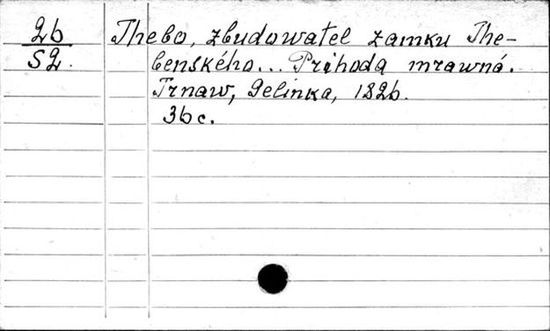 26 Thebo, zbudowatel zamku The-
S2. benského... Prihoda mrawná.
Trnaw, Gelinka, 1826.
36 c.